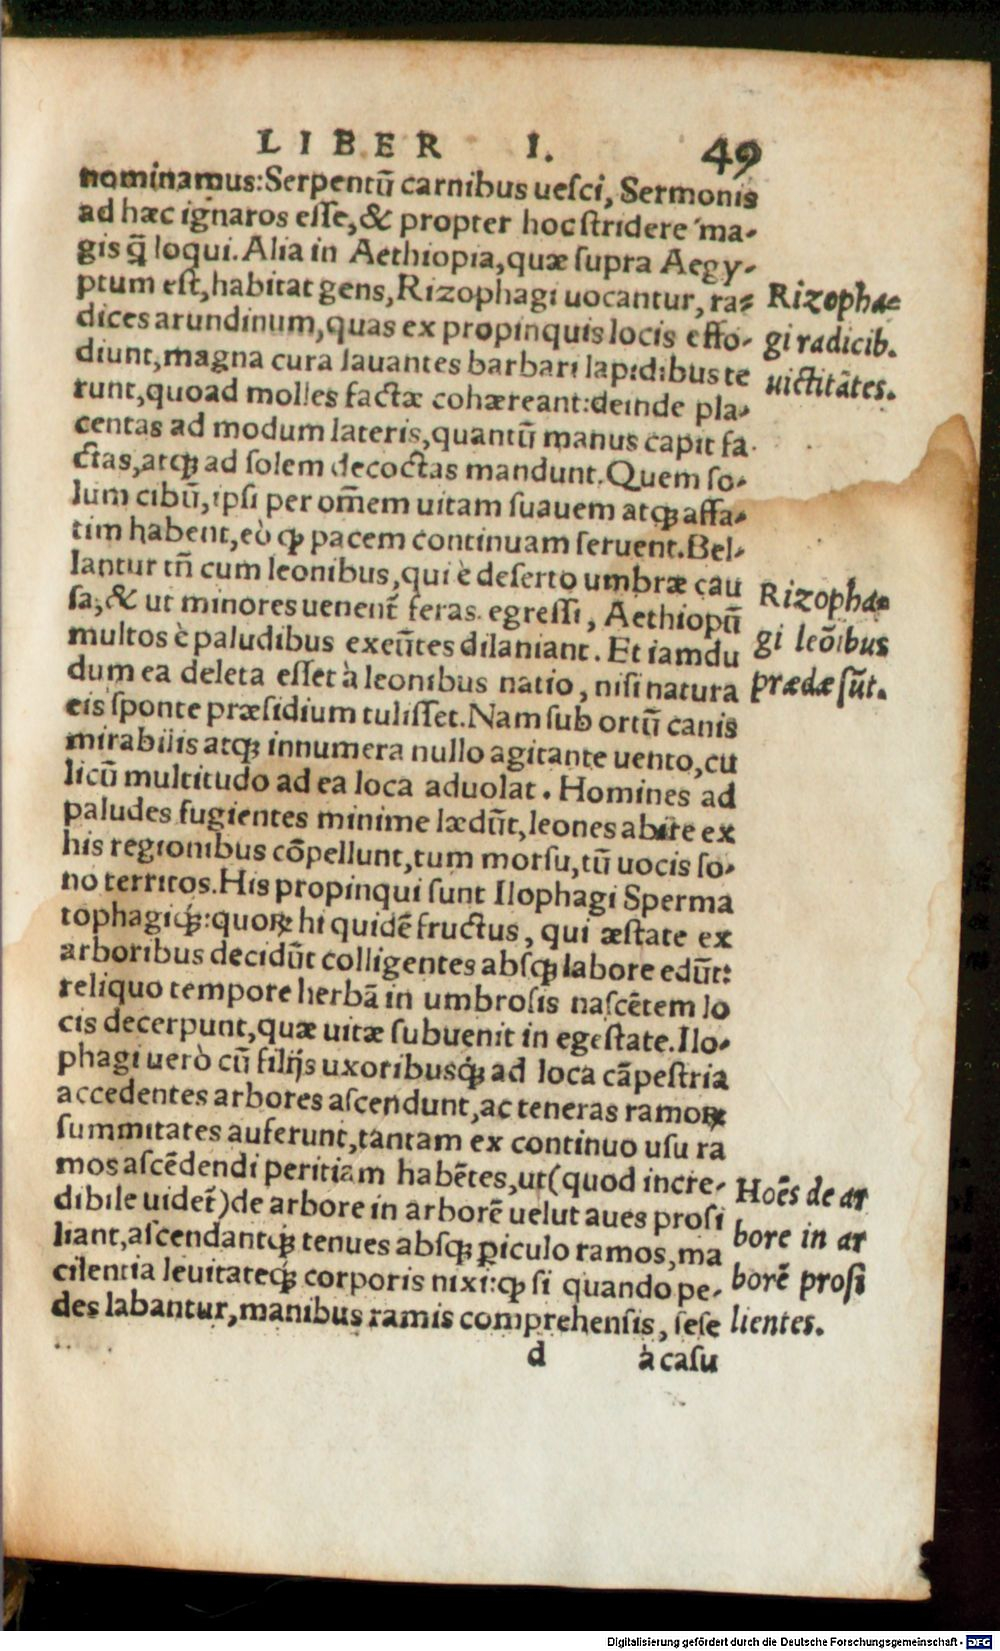 LIBER I. 49
nominamus:Serpentũ carnibus uesci, Sermonis
ad hæc ignaros esse,& propter hoc stridere ma-
gis q̃ loqui.Alia in Aethiopia,quæ supra Aegy-
ptum est,habitat gens,Rizophagi uocantur, ra-
dices arundinum,quas ex propinquis locis effo-
diunt,magna cura lauantes barbari lapidibus te
runt,quoad molles factæ cohæreant:deinde pla-
centas ad modum lateris,quantũ manus capit fa-
ctas,atq; ad solem decoctas mandunt.Quem so-
lum cibũ,ipsi per om̃em uitam suauem atq; affa-
tim habent,eò ꝙ pacem continuam seruent.Bel-
lantur tñ cum leonibus,qui è deserto umbræ cau
sa,& ut minores uenent̃ feras egressi, Aethiopũ
multos è paludibus exeũtes dilaniant. Et iamdu
dum ea deleta esset à leonibus natio, nisi natura
eis sponte præsidium tulisset.Nam sub ortũ canis
mirabilis atq; innumera nullo agitante uento,cu
licũ multitudo ad ea loca aduolat. Homines ad
paludes fugientes minime lædũt,leones abire ex
his regionibus cõpellunt,tum morsu,tũ uocis so-
no territos.His propinqui sunt Ilophagi Sperma
tophagiq́;:quoꝝ hi quidẽ fructus, qui æstate ex
arboribus decidũt colligentes absq; labore edũt:
reliquo tempore herbã in umbrosis nascẽtem lo
cis decerpunt,quæ uitæ subuenit in egestate.Ilo-
phagi uerò cũ filijs uxoribusq́; ad loca cãpestria
accedentes arbores ascendunt,ac teneras ramoꝝ
summitates auferunt,tantam ex continuo usu ra
mos ascẽdendi peritiam habẽtes,ut(quod incre-
dibile uidet̃)de arbore in arborẽ uelut aues prosi
liant,ascendantq́; tenues absq; ꝑiculo ramos,ma
cilentia leuitateq́; corporis nixi:ꝙ si quando pe-
des labantur,manibus ramis comprehensis, sese
d à casu
Rizopha-
gi radicib.
uictitãtes.
Rizopha-
gi leõibus
prædæ sũt.
Hoẽs de ar
bore in ar
borẽ prosi
lientes.
Digitalisierung gefördert durch die Deutsche Forschungsgemeinschaft - DFG